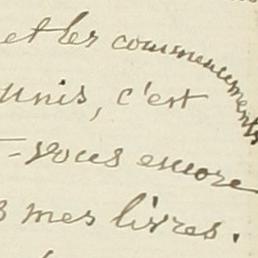 et les commencements
unis, c'est
-vous encore
mes livres.